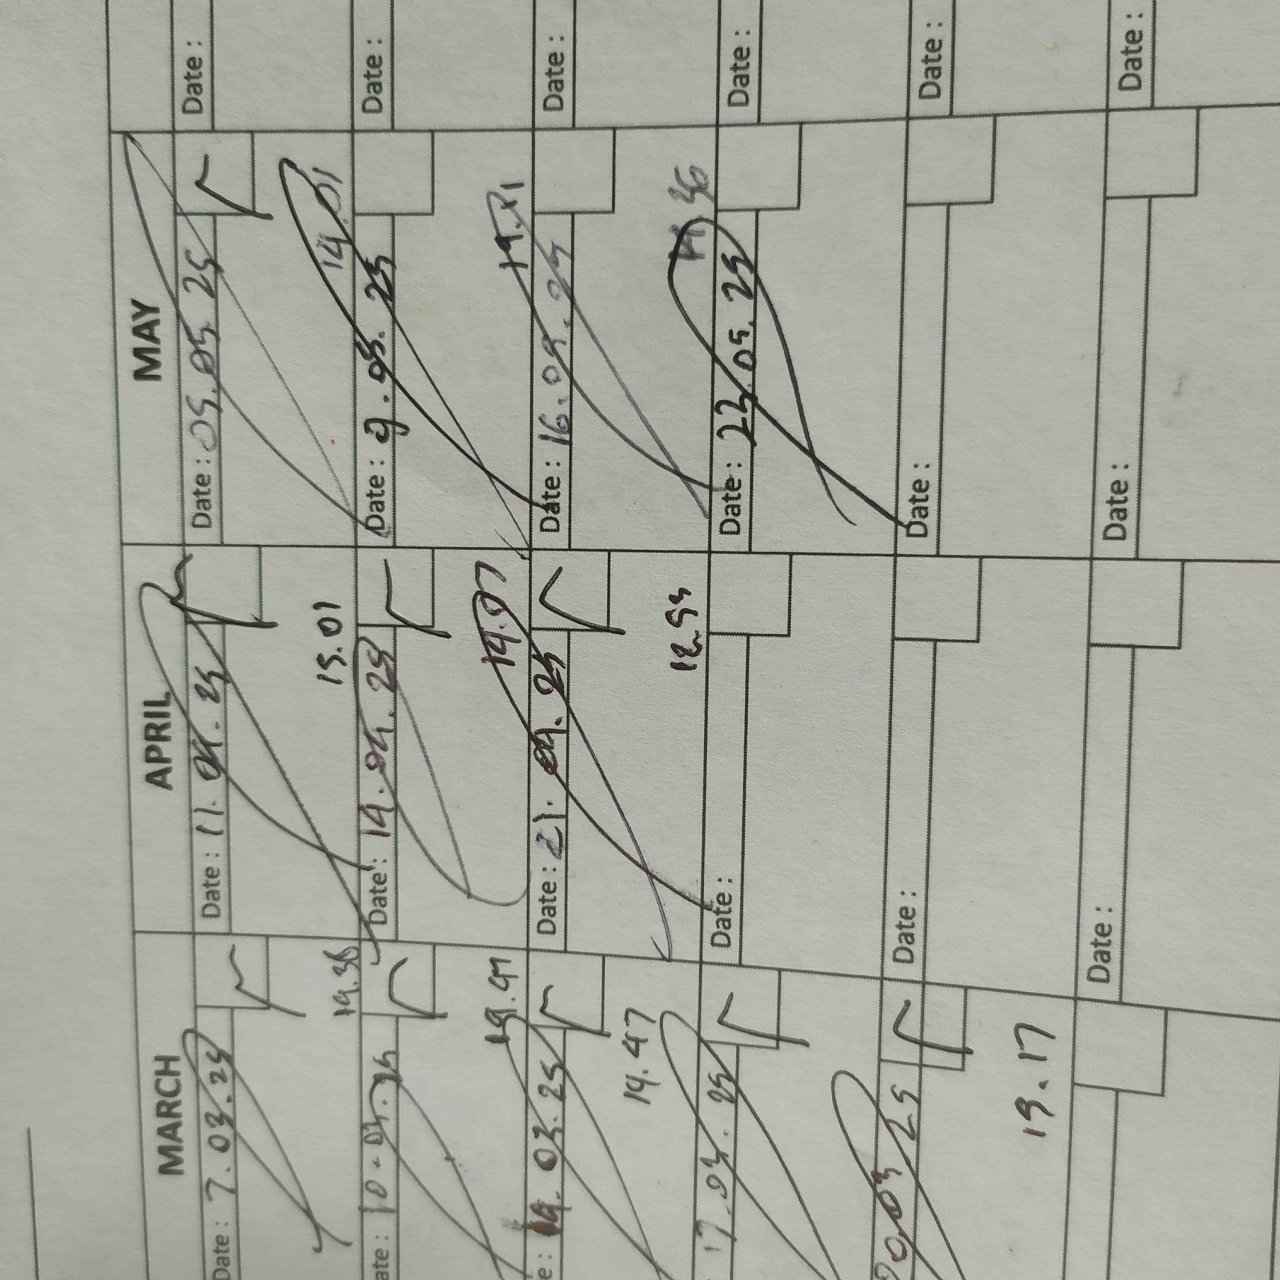 MARCH
Date: 7.03.25
Date: 10.03.25
19.38
Date: 19.03.25
19.47
17.03.25
14.47
20.03 25
19.17
APRIL
Date: 11.04.25
Date: 14.04.25
15.01
Date: 21.04.25
14.07
Date:
12.53
Date:
Date:
MAY
Date: 05.05.25
Date: 9.05.25
14.01
Date: 16.05.25
Date: 23.05.25
Date:
Date:
Date:
Date:
Date:
Date:
Date:
Date: